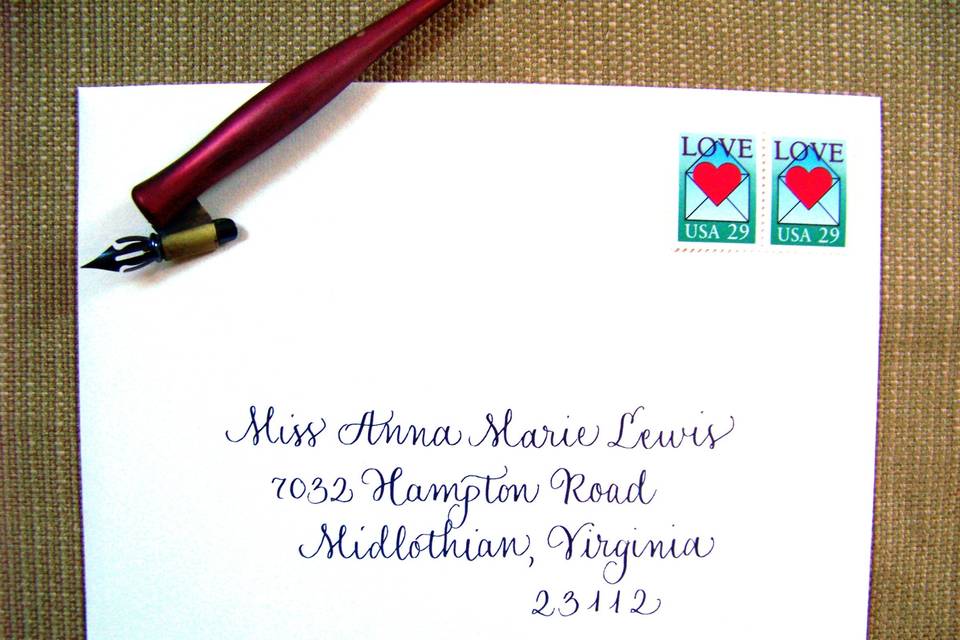 LOVE LOVE
USA 29 USA 29
Miss Anna Marie Lewis
7032 Hampton Road
Midlothian, Virginia
23112